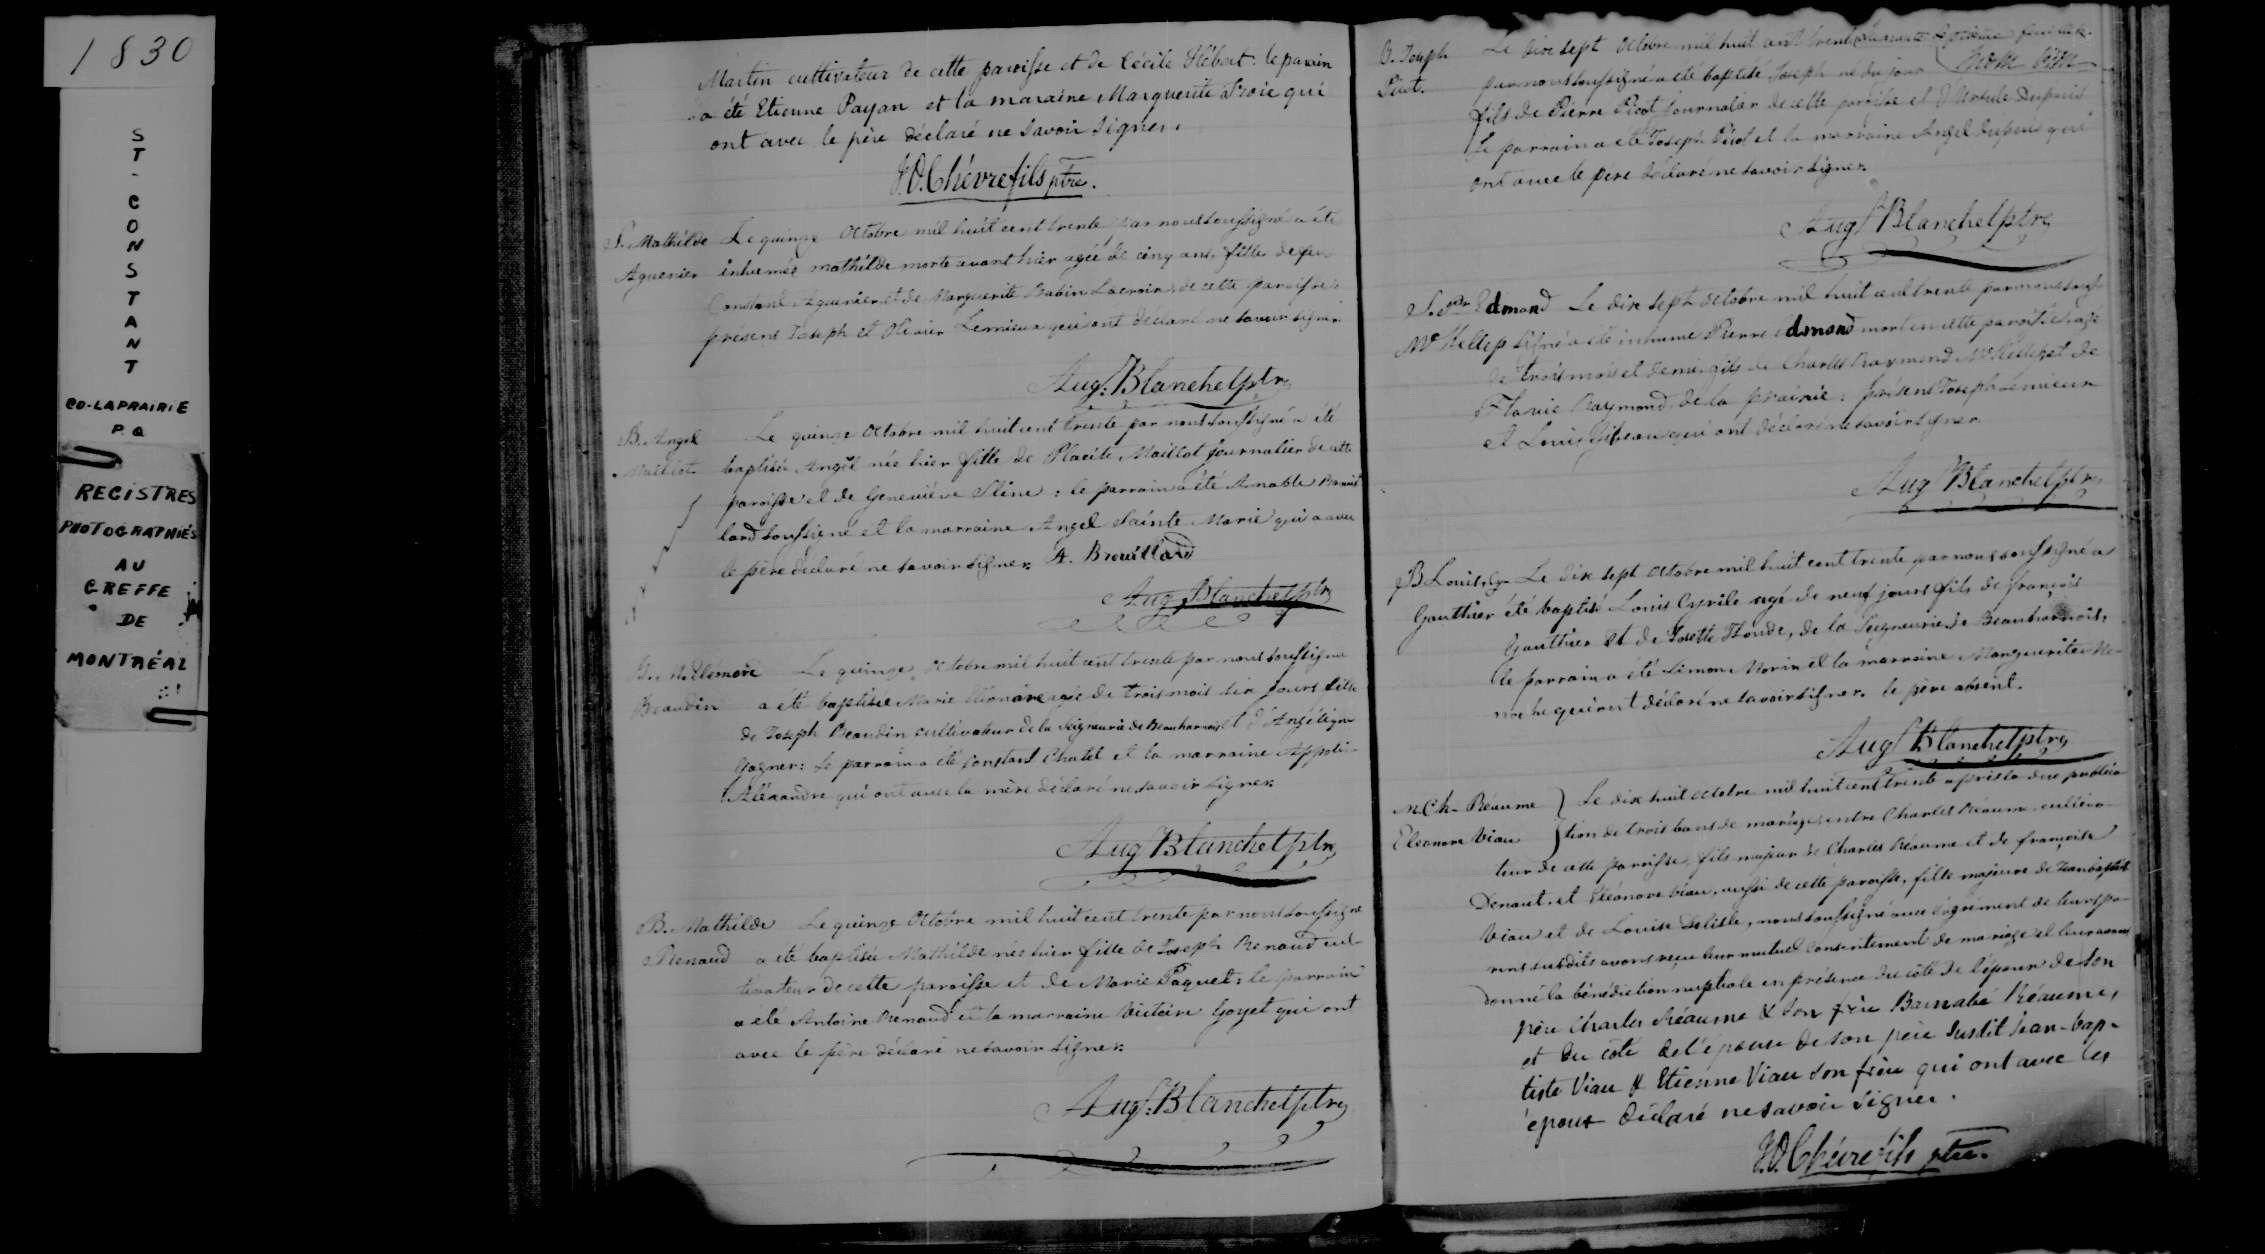 1830
ST-CONSTANT
CO-LAPRAIRIE
P.Q
REGISTRES
PHOTOGRAPHIÉS
AU
GREFFE
DE
MONTRÉAL
Martin cultivateur de cette paroisse et de Cécile Hébert: le parrain
a été Etienne Payan et la maraine Marguerite qui
ont avec le père déclaré ne savoir signer.
J.O. Chèvrefils ptre.
S. Mathilde
Aguenier
Le quinze Octobre mil huit cent trente par nous soussigné a été
inhumée mathilde morte avant hier agée de cinq ans fille de feu
Constant Aguenier et de Marguerite Babin Lacroix de cette paroisse:
présens Joseph et Olivier Lemieux qui ont déclaré ne savoir signer
Aug. Blanchet ptre
B. Angel
Maillot
Le quinze Octobre mil huit cent trente par nous soussigné a été
baptisée Angèl née hier fille de Placide Maillot journalier de cette
paroisse et de Geneviève : le parrain a été Amable Brouil
lard soussigné et la marraine Angel Sainte Marie qui a avec
le père déclaré ne savoir signer. A. Brouillard
Aug. Blanchet ptre
B. M. Elémore
Beaudin
Le quinze Octobre mil huit cent trente par nous soussigné
a été baptisée Marie agée de trois mois six jours fille
de Joseph Beaudin cultivateur de la Seigneurie de Beauharnois et d'Angélique
Gagner: le parrain a été Constant Chatel et la marraine
Aléxandre qui ont avec la mère déclaré ne savoir signer.
Aug. Blanchet ptre
B. Mathilde
Renaud
Le quinze Octobre mil huit cent trente par nous soussigné
a été baptisée Mathilde née hier fille de Joseph Renaud cul
tivateur de cette paroisse et de Marie Paquet: le parrain
a été Antoine Renaud et la marraine Victoire Goyet qui ont
avec le père déclaré ne savoir signer.
Aug. Blanchet ptre
B. Joseph
Picot.
Le dix sept Octobre mil huit cent trente
par nous soussigné a été baptisé Joseph né du jour
fils de Pierre Picot journalier de cette paroisse et d'Ursule Dupuis
le parrain a été Joseph Picot et la marraine Angel Dupuis qui
ont avec le père déclaré ne savoir signer.
Aug. Blanchet ptre
S. Prre Edmond
Mc Kellep
Le dix sept Octobre mil huit cent trente par nous sous
signé a été inhumé Pierre Edmond mort en cette paroisse agé
de trois mois et demi fils de Charles Raymond Mc Kellep et de
Flavie Raymond de la prairie: présens Joseph Lemieux
et Louis Gibeau qui ont déclaré ne savoir signer
Aug. Blanchet ptre
B Louis Cy-
Gauthier
Le dix sept Octobre mil huit cent trente par nous soussigné a
été baptisé Louis Cyrile agé de neuf jours fils de françois
Gauthier et de Josette , de la Seigneurie de Beauharnois,
le parrain a été Simon Morin et la marraine Marguerite
qui ont déclaré ne savoir signer. le père absent.
Aug. Blanchet ptre
M. Ch- Réaume
Eléonore Viau
Le dix huit Octobre mil huit cent trente après la due publica
tion de trois bans de mariage, entre Charles Réaume cultiva-
teur de cette paroisse, fils majeur de Charles Réaume et de françoise
Denaut, et Eléonore Viau, aussi de cette paroisse, fille majeure de Jean baptiste
Viau et de Louise Delisle, nous soussigné avec l'agrément de leurs pa-
rens susdits avons reçu leur mutuel consentement de mariage et leur avons
donné la bénédiction nuptiale en présence du côté de l'époux de son
père Charles Réaume & son frère Barnabé Réaume,
et du côté de l'épouse de son père susdit Jean-bap-
tiste Viau & Etienne Viau son frère qui ont avec les
époux déclaré ne savoir signer.
J.O. Chèvrefils ptre.